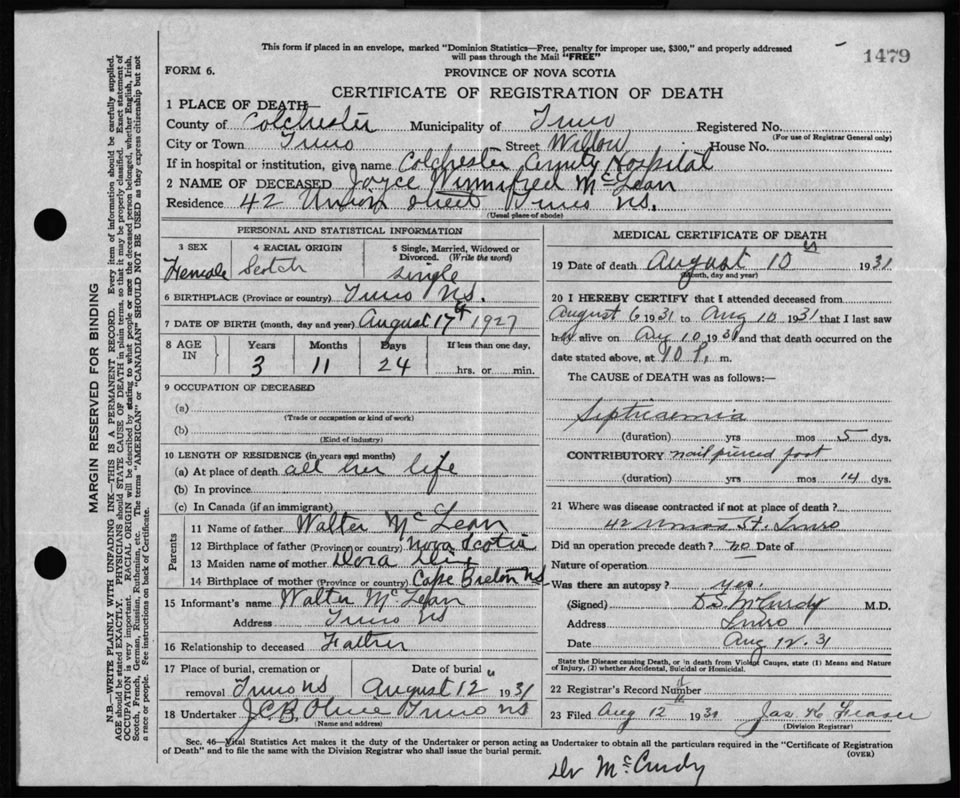 This form if placed in an envelope, marked "Dominion Statistics—Free, penalty for improper use, $300," and properly addressed
will pass through the Mail "FREE"
1479
FORM 6.
PROVINCE OF NOVA SCOTIA
CERTIFICATE OF REGISTRATION OF DEATH
1 PLACE OF DEATH—
County of Colchester Municipality of Truro Registered No.
(For use of Registrar General only)
City or Town Truro Street Willow House No.
If in hospital or institution, give name Colchester County Hospital
2 NAME OF DECEASED Joyce Winnifred McLean
Residence 42 Union Street Truro NS.
(Usual place of abode)
PERSONAL AND STATISTICAL INFORMATION
3 SEX 4 RACIAL ORIGIN 5 Single, Married, Widowed or Divorced. (Write the word)
Female Scotch single
6 BIRTHPLACE (Province or country) Truro NS.
7 DATE OF BIRTH (month, day and year) August 17th 1927
8 AGE IN Years Months Days If less than one day,
3 11 24 hrs. or min.
9 OCCUPATION OF DECEASED
(a)
(Trade or occupation or kind of work)
(b)
(Kind of industry)
10 LENGTH OF RESIDENCE (in years and months)
(a) At place of death all her life
(b) In province
(c) In Canada (if an immigrant)
Parents
11 Name of father Walter McLean
12 Birthplace of father (Province or country) Nova Scotia
13 Maiden name of mother Dora
14 Birthplace of mother (Province or country) Cape Breton NS
15 Informant's name Walter McLean
Address Truro NS
16 Relationship to deceased Father
17 Place of burial, cremation or Date of burial
removal Truro NS August 12" 1931
18 Undertaker J.C.B. Truro NS
(Name and address)
MEDICAL CERTIFICATE OF DEATH
19 Date of death August 10th 1931
(Month, day and year)
20 I HEREBY CERTIFY that I attended deceased from
August 6 1931 to Aug 10 1931 that I last saw
her alive on Aug 10 1931 and that death occurred on the
date stated above, at 10 P. m.
The CAUSE of DEATH was as follows:—
Septicaemia
(duration) yrs mos 5 dys.
CONTRIBUTORY nail pierced foot
(duration) yrs mos 14 dys.
21 Where was disease contracted if not at place of death?
42 Union St. Truro
Did an operation precede death? no Date of
Nature of operation
Was there an autopsy? yes.
(Signed) D.S. McCurdy M.D.
Address Truro
Date Aug 12. 31
State the Disease causing Death, or in death from Violent Causes, state (1) Means and Nature
of Injury, (2) whether Accidental, Suicidal or Homicidal.
22 Registrar's Record Number
23 Filed Aug 12 1931 Jas K Fraser
(Division Registrar)
Sec. 46—Vital Statistics Act makes it the duty of the Undertaker or person acting as Undertaker to obtain all the particulars required in the "Certificate of Registration
of Death" and to file the same with the Division Registrar who shall issue the burial permit.
(OVER)
Dr McCurdy
MARGIN RESERVED FOR BINDING
N.B.—WRITE PLAINLY WITH UNFADING INK—THIS IS A PERMANENT RECORD. Every item of information should be carefully supplied.
AGE should be stated EXACTLY. PHYSICIANS should STATE CAUSE OF DEATH in plain terms, so that it may be properly classified. Exact statement of
OCCUPATION is very important. RACIAL ORIGIN will be described by stating to what people or race the deceased person belonged, whether English, Irish,
Scotch, French, German, Russian, Ruthenian, etc. The terms "AMERICAN" or "CANADIAN" SHOULD NOT BE USED as they express citizenship but not
a race or people. Fee instructions on back of Certificate.